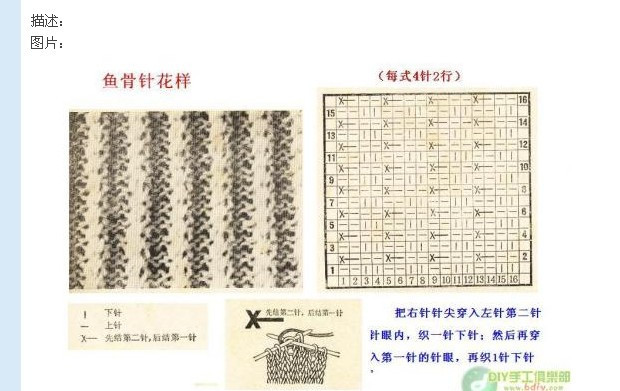 描述：
图片：
鱼骨针花样
（每式4针2行）
X— X— X— X— 16
15
X— X— X— X— 14
13
X— X— X— X— 12
11
X— X— X— X— 10
9
X— X— X— X— 8
7
X— X— X— X— 6
5
X— X— X— X— 4
3
X— X— X— X— 2
1
1 2 3 4 5 6 7 8 9 10 11 12 13 14 15 16
| 下针
— 上针
X— 先结第二针,后结第一针
X— 先结第二针，后结第一针
把右针针尖穿入左针第二针
针眼内，织一针下针；然后再穿
入第一针的针眼，再织1针下针
DIY手工俱乐部
www.bdfy.com